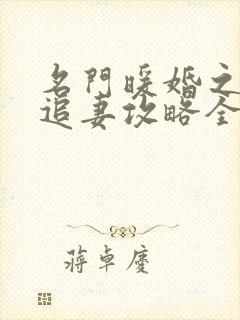 名門暖婚之
追妻攻略全
蔣卓慶